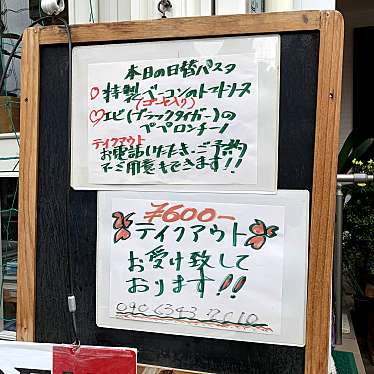 本日の日替パスタ
特製ベーコンのトマトソース
(コーン入り)
エビ(ブラックタイガー)の
ペペロンチーノ
テイクアウト
お電話いただき、ご予約
でご用意もできます!!
¥600-
テイクアウト
お受け致して
おります!!
090 6343 2610